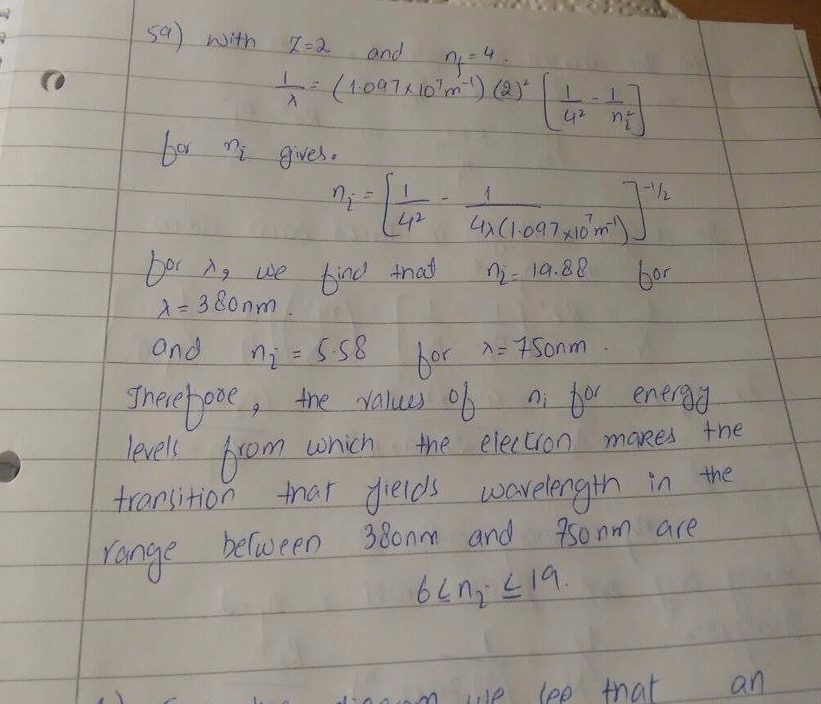 5a) with Z=2 and n_f = 4.
1/λ = (1.097×10⁷m⁻¹) (2)² [1/4² - 1/n_i²]
for n_i gives.
n_i = [1/4² - 1/4λ(1.097×10⁷m⁻¹)]^(-1/2)
for λ, we find that n_i = 19.88 for
λ = 380nm.
and n_i = 5.58 for λ = 750nm.
Therefore, the values of n_i for energy
levels from which the electron makes the
transition that yields wavelength in the
range between 380nm and 750nm are
6 ≤ n_i ≤ 19.
diagram we see that an